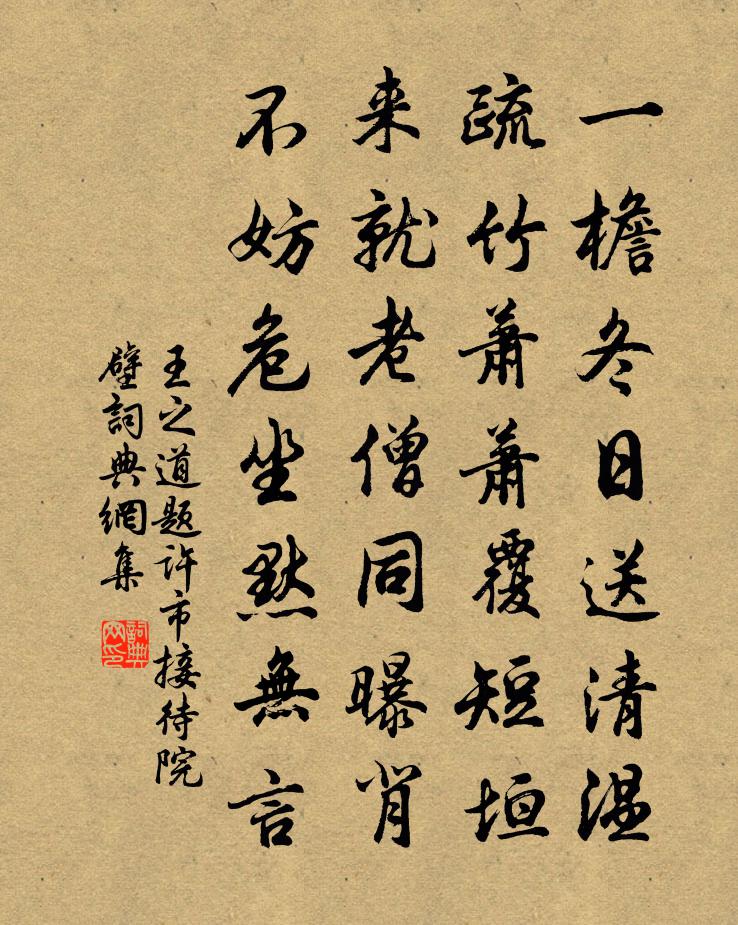 一檐冬日送清温
疏竹蕭蕭覆短垣
来就老僧同曝背
不妨危坐默無言
王之道题許市接待院
壁詞典網集
詞典
网印